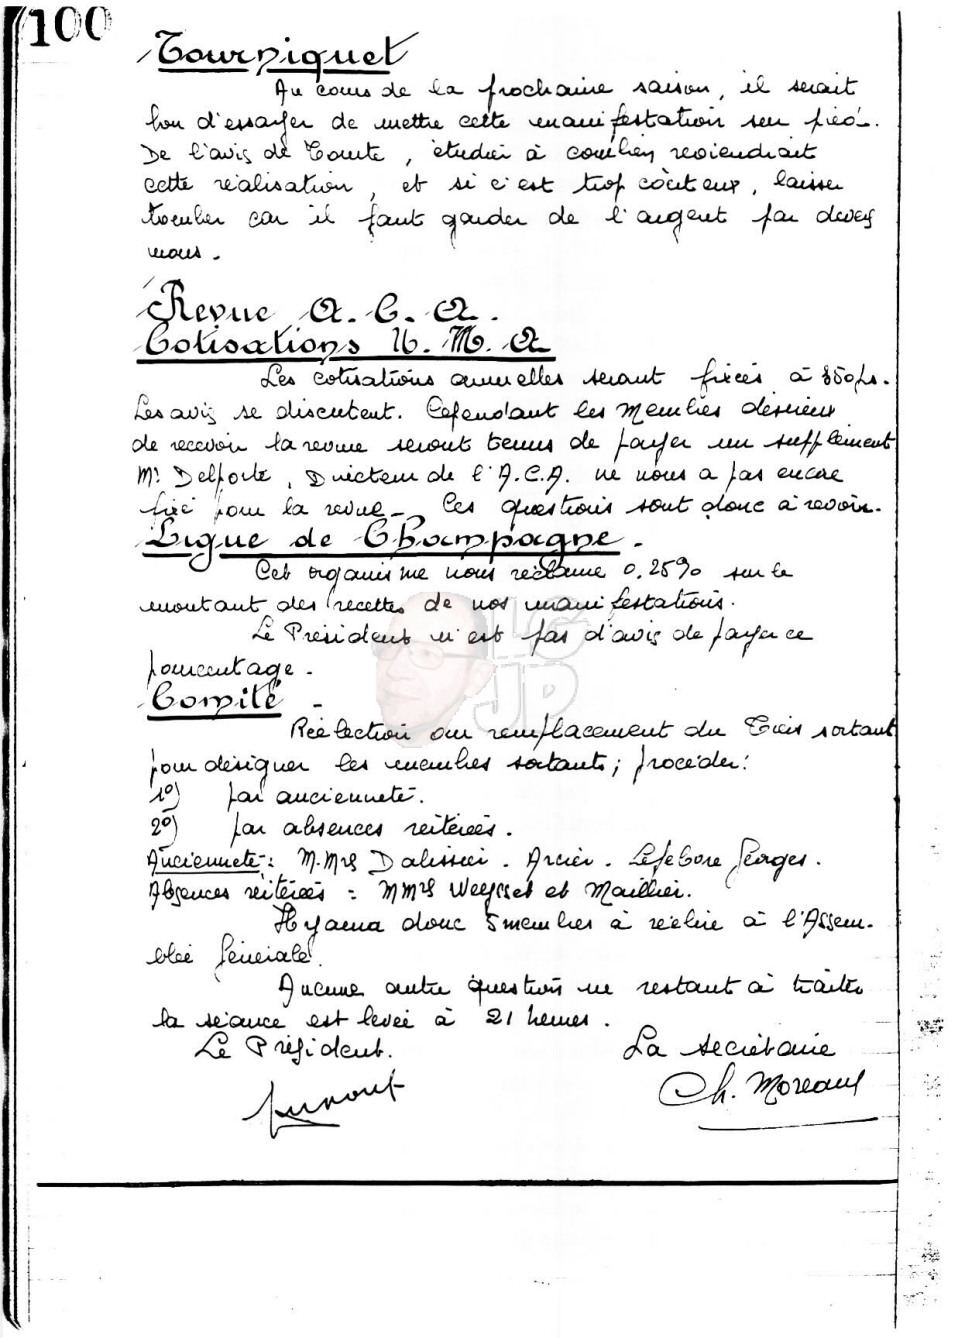 100
Tourniquet
Au cours de la prochaine saison, il serait
bon d'essayer de mettre cette manifestation sur pied.
De l'avis de Comite, étudier à combien reviendrait
cette réalisation, et si c'est trop coûteux, laisser
tomber car il faut garder de l'argent par devers
nous.
Revue A.C.A.
Cotisations U.M.A
Les cotisations annuelles seront fixées à 850frs.
Les avis se discutent. Cependant les Membres désireux
de recevoir la revue seront tenus de payer un supplément
Mr Delporte, Directeur de l'A.C.A. ne nous a pas encore
fixé pour la revue_ Ces questions sont donc à revoir.
Ligue de Champagne.
Cet organisme nous réclame 0.25% sur le
montant des recettes de nos manifestations.
Le Président n'est pas d'avis de payer ce
pourcentage.
Comité -
Réelection ou remplacement du Tiers sortant
pour désigner les membres sortants; procéder:
1º) par ancienneté.
2º) par absences réitérées.
Ancienneté: M.Mrs Dalissier. Arcier. Lefebvre Georges.
Absences réitérées: MMrs Weysset et Maillier.
Il y aura donc 5 membres à réélire à l'Assem-
blée Générale.
Aucune autre question ne restant à traiter
la séance est levée à 21 heures.
Le Président. La secrétaire
Ch. Moreaux
LG
JP